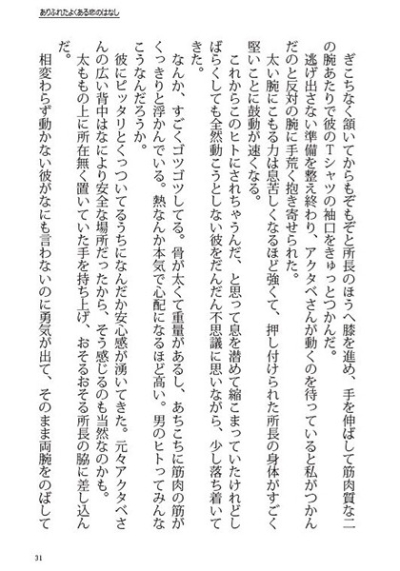 ありふれたよくある恋のはなし
ぎこちなく頷いてからもぞもぞと所長のほうへ膝を進め、手を伸ばして筋肉質な二
の腕あたりで彼のTシャツの袖口をきゅっとつかんだ。
逃げ出さない準備を整え終わり、アクタベさんが動くのを待っていると私がつかん
だのと反対の腕に手荒く抱き寄せられた。
太い腕にこもる力は息苦しくなるほど強くて、押し付けられた所長の身体がすごく
堅いことに鼓動が速くなる。
これからこのヒトにされちゃうんだ、と思って息を潜めて縮こまっていたけれどし
ばらくしても全然動こうとしない彼をだんだん不思議に思いながら、少し落ち着いて
きた。
なんか、すごくゴツゴツしてる。骨が太くて重量があるし、あちこちに筋肉の筋が
くっきりと浮かんでいる。熱なんか本気で心配になるほど高い。男のヒトってみんな
こうなんだろうか。
彼にピッタリとくっついてるうちになんだか安心感が湧いてきた。元々アクタベさ
んの広い背中はなにより安全な場所だったから、そう感じるのも当然なのかも。
太ももの上に所在無く置いていた手を持ち上げ、おそるおそる所長の脇に差し込ん
だ。
相変わらず動かない彼がなにも言わないのに勇気が出て、そのまま両腕をのばして
31